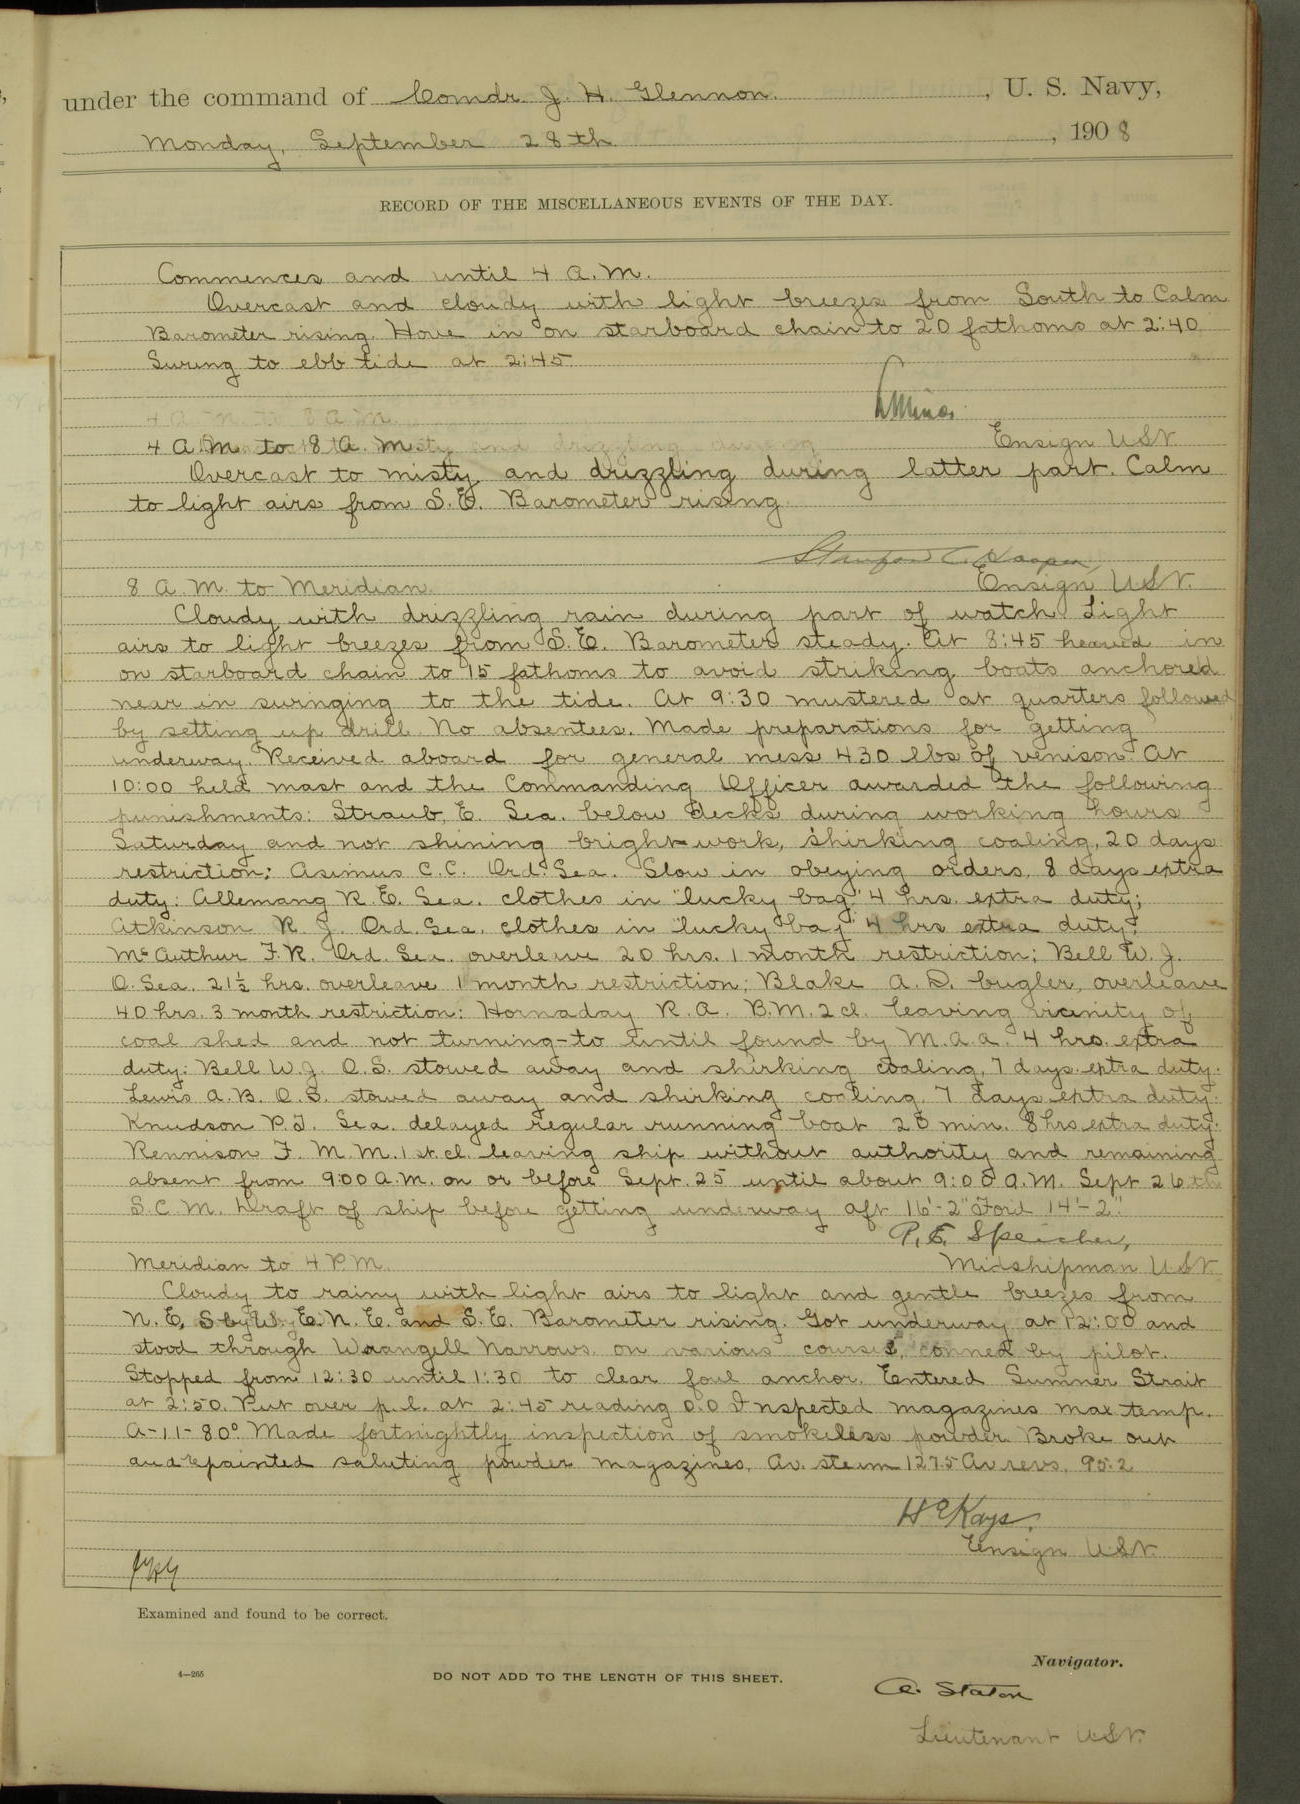 under the command of Comdr. J. H. Glennon. , U. S. Navy,
Monday, September 28th , 1908
RECORD OF THE MISCELLANEOUS EVENTS OF THE DAY.
Commences and until 4 A.M.
Overcast and cloudy with light breezes from South to Calm
Barometer rising. Hove in on starboard chain to 20 fathoms at 2:40
Swung to ebb tide at 2:45
Ensign USN.
4 A.M. to 8 A.M.
Overcast to misty and drizzling during latter part. Calm
to light airs from S.E. Barometer rising
Stanford C. Hooper,
Ensign U.S.N.
8 A.M. to Meridian.
Cloudy with drizzling rain during part of watch. Light
airs to light breezes from S.E. Barometer steady. At 8:45 heaved in
on starboard chain to 15 fathoms to avoid striking boats anchored
near in swinging to the tide. At 9:30 mustered at quarters followed
by setting up drill. No absentees. Made preparations for getting
underway. Received aboard for general mess 430 lbs of venison. At
10:00 held mast and the Commanding Officer awarded the following
punishments: Straub, E. Sea. below decks during working hours
Saturday and not shining bright-work, shirking coaling, 20 days
restriction; Asimus C.C. Ord. Sea. Slow in obeying orders, 8 days extra
duty: Allemang R.E. Sea. clothes in "lucky bag" 4 hrs. extra duty;
Atkinson R. J. Ord. Sea. clothes in "lucky bag" 4 hrs extra duty;
McArthur F.R. Ord. Sea. overleave 20 hrs. 1 month restriction; Bell W. J.
O. Sea. 21½ hrs. overleave 1 month restriction; Blake A. D. bugler, overleave
40 hrs. 3 month restriction: Hornaday R. A. B.M. 2 cl. leaving vicinity of
coal shed and not turning-to until found by M.A.A. 4 hrs. extra
duty: Bell W.J. O.S. stowed away and shirking coaling, 7 days extra duty.
Lewis A.B. O.S. stowed away and shirking coaling, 7 days extra duty.
Knudson P.J. Sea. delayed regular running boat 20 min. 8 hrs extra duty.
Rennison F. M.M. 1st. cl. leaving ship without authority and remaining
absent from 9:00 A.M. on or before Sept. 25 until about 9:00 A.M. Sept 26th
S.C.M. Draft of ship before getting underway aft 16'-2" Ford 14'-2".
P. E. Speicher,
Midshipman U.S.N.
Meridian to 4 P.M.
Cloudy to rainy with light airs to light and gentle breezes from
N.E., E.N.E. and S.E. Barometer rising. Got underway at 12:00 and
stood through Wrangell Narrows on various courses, conned by pilot.
Stopped from 12:30 until 1:30 to clear foul anchor. Entered Sumner Strait
at 2:50. Put over p.l. at 2:45 reading 0.0 Inspected magazines max temp.
A-11-80° Made fortnightly inspection of smokeless powder. Broke out
and repainted saluting powder magazines. Av. steam 127.5 Av revs. 95.2
H E Kays.
Ensign U.S.N.
Examined and found to be correct.
Navigator.
4—265
DO NOT ADD TO THE LENGTH OF THIS SHEET.
A. Staton
Lieutenant U.S.N.